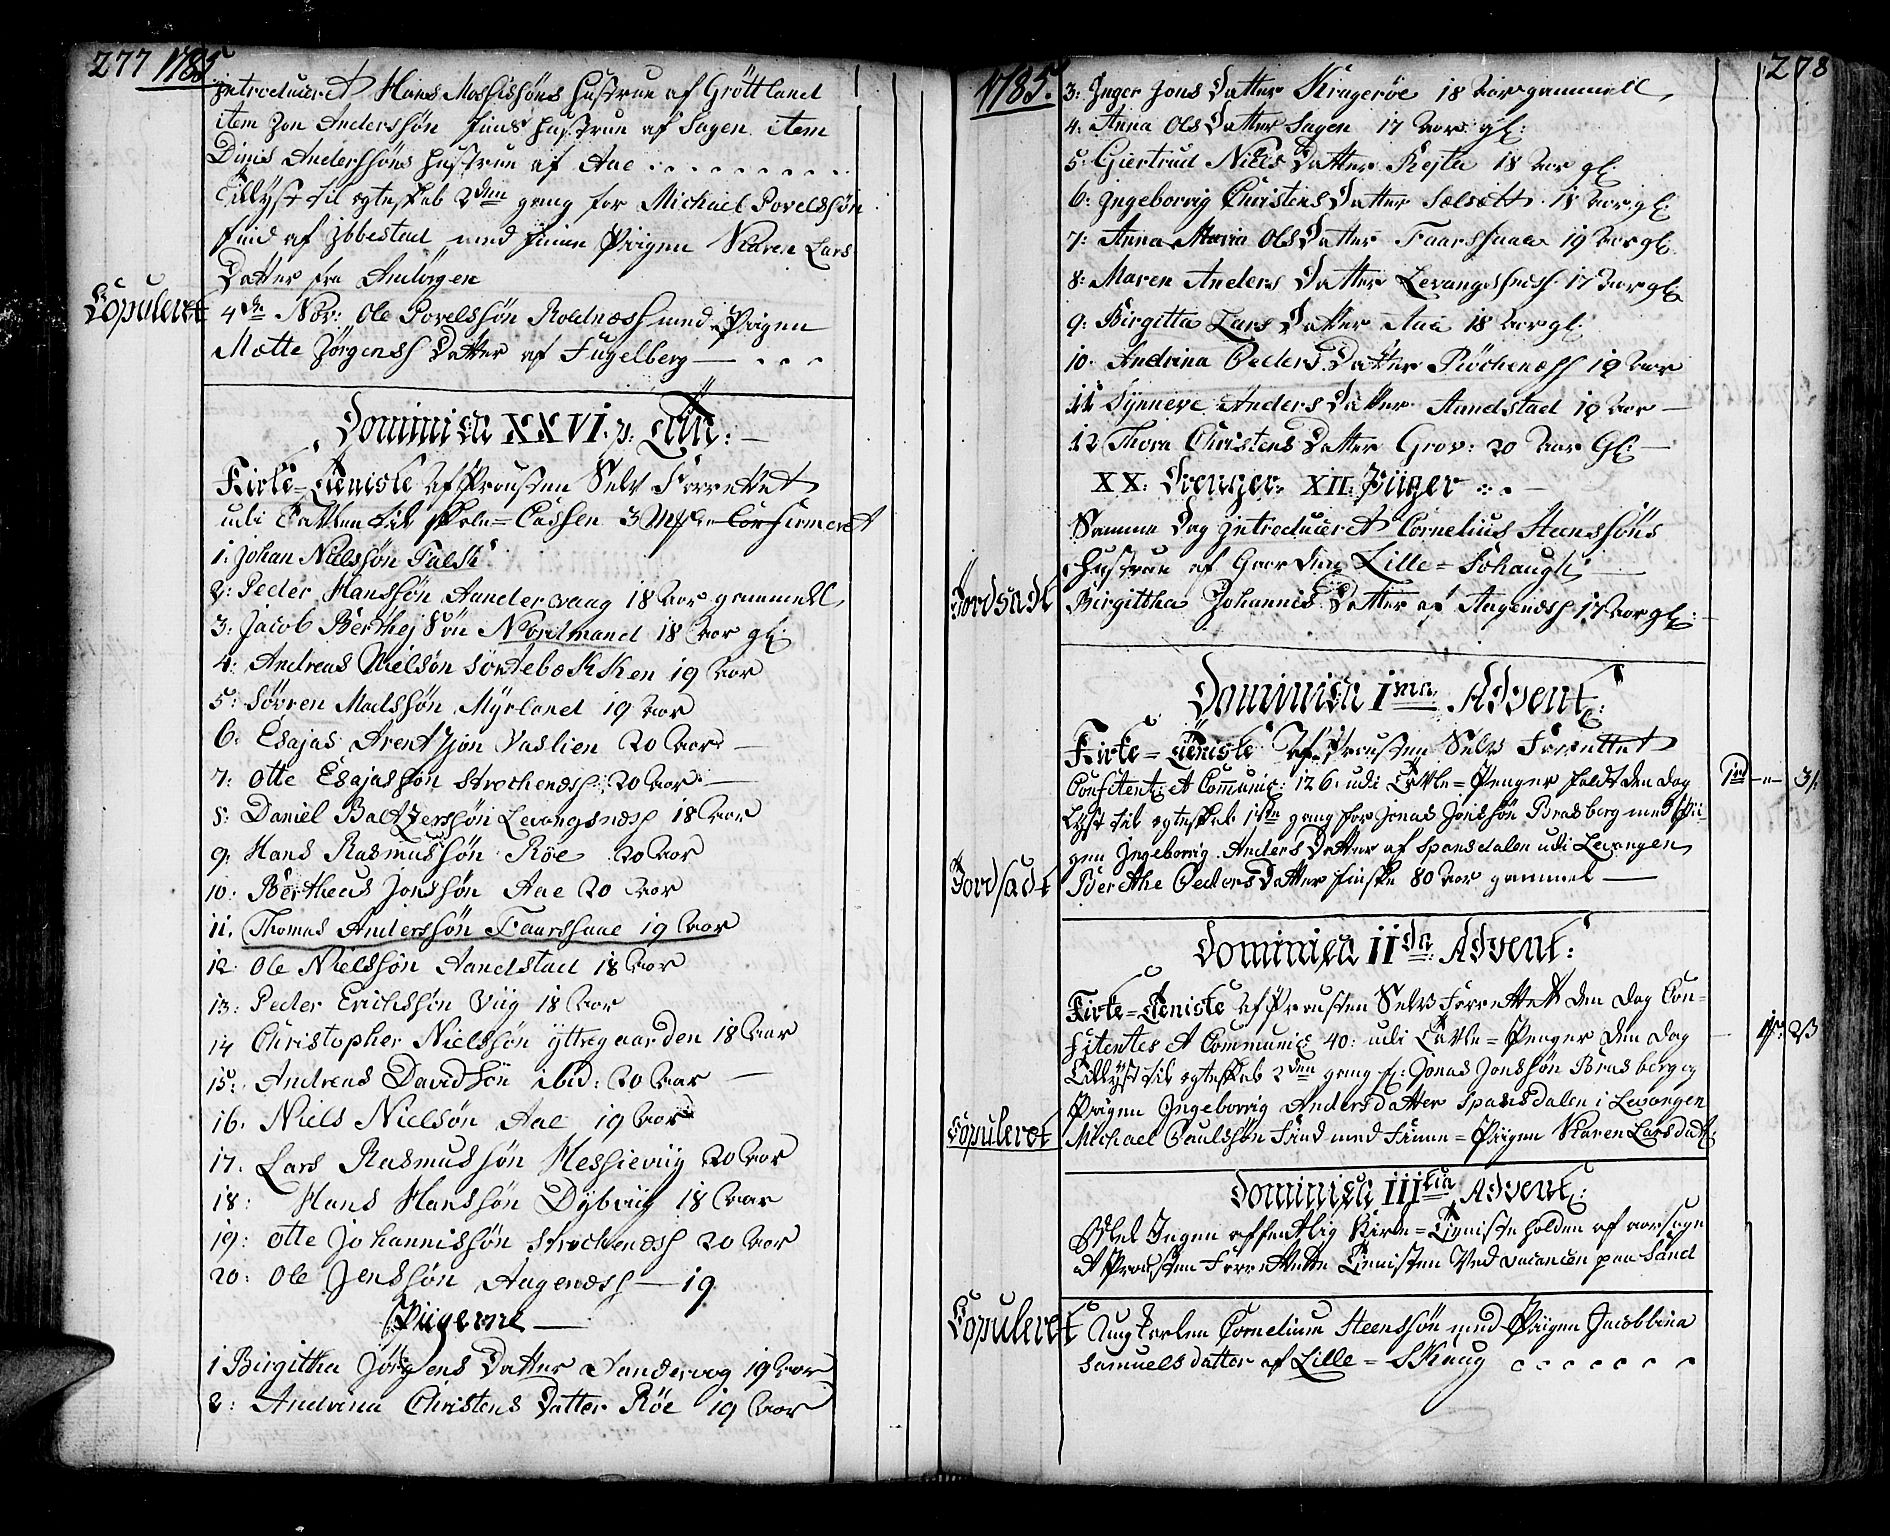 277 1785
introduceret Hans Mosisøns hustrue af Gröttland
item Jon Anderssøn Fins hustrue af Sagen item
Dinis Anderssøns hustrue af Aae
Tillyst til egteskab 2den gang for Michael Povelssøn
Find af Ibbestad med Finne Piigen Karen Lars
Datter fra Andörgen
Copuleret
4de Nov: Ole Povelssøn Roldnæss med Piigen
Mætte Jörgenss Datter af Fugelberg
Dominica XXVI. p. Trin:
Kirke=Tieniste af Prousten Selv Forrettet
udi Tavlen til Skole=Cassen 3 Mk Confirmeret
1. Johan Nielssøn Falch
2: Peder Hanssøn Aandervaag 18 Aar gammell
3: Jacob Berthej Søn Nordmand 18 Aar gl
4: Andreas Nielsøn Sörtebækken 19 Aar
5: Sövren Madssøn Myrland 19 Aar
6: Esajas Arentzøn Vaslien 20 Aar
7: Otte Esajassøn Strochenæss: 20 Aar
8: Daniel Baltzerssøn Levangsnæss 18 Aar
9: Hans Rasmussøn Röe 20 Aar
10: Bertheus Jonssøn Aae 20 Aar
11. Thomas Anderssøn Faarshaae 19 Aar
12: Ole Nielssøn Aandstad 18 Aar
13: Peder Erichssøn Viig 18 Aar
14 Christopher Nielssøn yttregaarden 18 Aar
15: Andreas Davidsøn ibid: 20 Aar
16. Niels Nielsøn Aae 19 Aar
17. Lars Rasmussøn Hessieviig 20 Aar
18: Hans Hanssøn Dybviig 18 Aar
19: Otte Johannissøn Strochenæss 20 Aar
20: Ole Jenssøn Aagenæss 19
Piigerne
1 Birgitha Jörgens Datter Aandervog 19 Aar
2: Andrina Christens Datter Röe 19 Aar
1785. 278
3: Inger Jons Datter Kragerøe 18 Aar gammell
4. Anna Ols Datter Sagen 17 Aar gl:
5: Giertrud Niels Datter Refla 18 Aar gl
6: Ingeborrig Christens Datter Sælsætt 18 Aar gl:
7: Anna Maria Ols Datter Faarshaae 19 Aar gl
8: Maren Anders Datter Levangsnæss 17 Aar gl
9: Birgitta Lars Datter Aae 18 Aar gl:
10. Andrina Peders Datter Röchenæss 19 Aar
11 Synneve Anders Datter Aandstad 19 Aar
12 Thora Christens Datter Grov: 20 Aar Gl:
XX: Drenger XII: Piiger
Samme Dag introduceret Cornelius Steenssøns
Hustrue af Gaarden Lille=Schaugh
Jordsadt
Birgittha Johannis Datter af Aagenæss 17 Aar gl:
Dominica Ima Advent:
Kirke=Tieniste af Prousten Selv Forrettet
Confitent: et Comunic: 126: udi Tavle=Penger faldt den Dag
Lyst til egteskab 1ste gang for Jonas Jonssøn Brasberg med Pii-
gen Ingeborrig Anders Datter af Spansdalen udi Levangen
Jordsadt
Berethe Peders Datter Finske 80 Aar gammel
Dominica IIda Advent:
Kirke=Tieniste af Prousten Selv Forrettet den Dag Con-
fitentes et Communic 40: udi Tavle=Penger den Dag
Tillyst til egteskab 2den gang f: Jonas Jonssøn Brasberg og
Piigen Ingeborrig Andersdatter Spansdalen i Levangen
Copuleret
Michael Paulssøn Find med Finne=Piigen Karen Larsdatt:
Dominica IIItia Advent:
Blef Ingen offentlig Kirke=Tieniste holden af aarsage
at Prousten Forrettede Tienisten Ved vacancen paa Sand
Copuleret
Ung Karlen Cornelius Steenssøn med Piigen Jacobbina
Samuelsdatter af Lille=Skaug